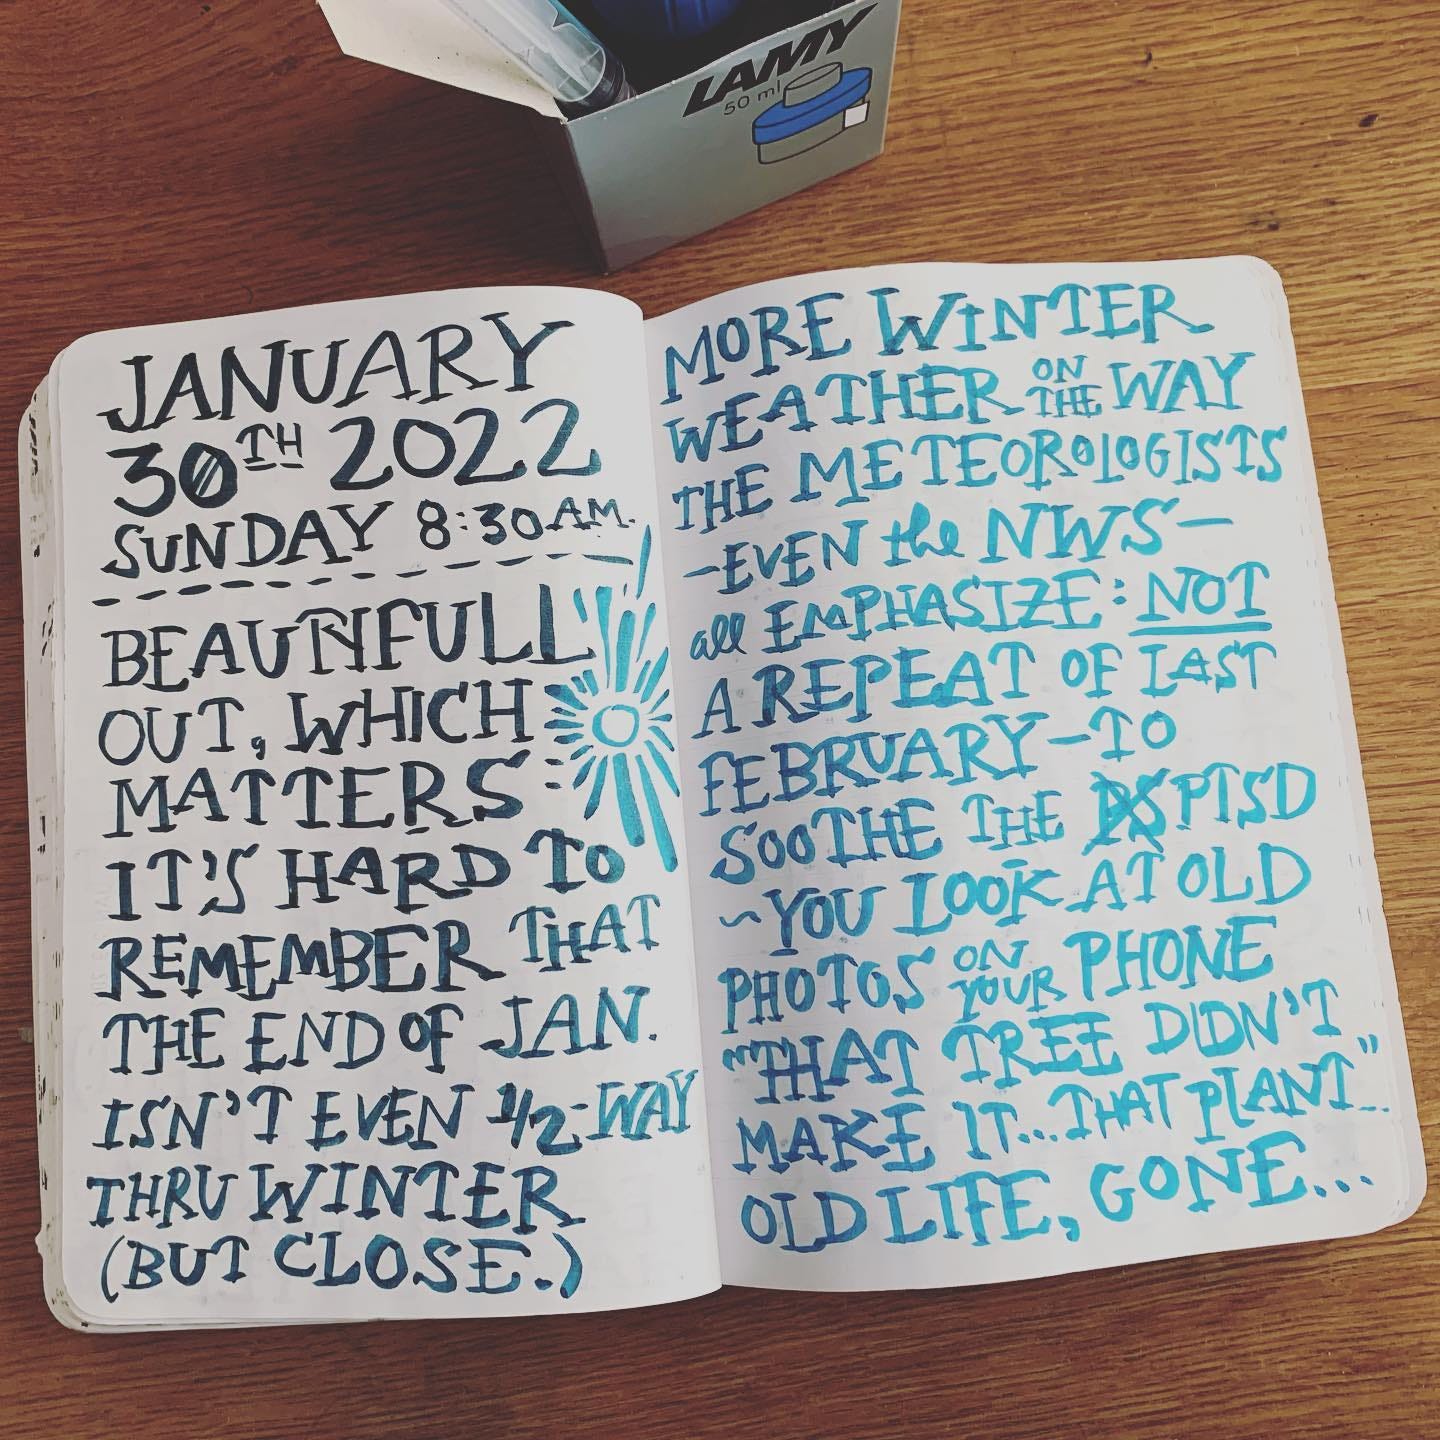 LAMY
50 ml
JANUARY
30TH 2022
SUNDAY 8:30 A.M.
BEAUTIFULL
OUT, WHICH
MATTERS:
IT'S HARD TO
REMEMBER THAT
THE END OF JAN.
ISN'T EVEN 1/2-WAY
THRU WINTER
(BUT CLOSE.)
MORE WINTER
WEATHER ON THE WAY
THE METEOROLOGISTS
—EVEN the NWS—
all EMPHASIZE: NOT
A REPEAT OF LAST
FEBRUARY—TO
SOOTHE THE PS PTSD
~YOU LOOK AT OLD
PHOTOS ON YOUR PHONE
"THAT TREE DIDN'T
MAKE IT...THAT PLANT"...
OLD LIFE, GONE...